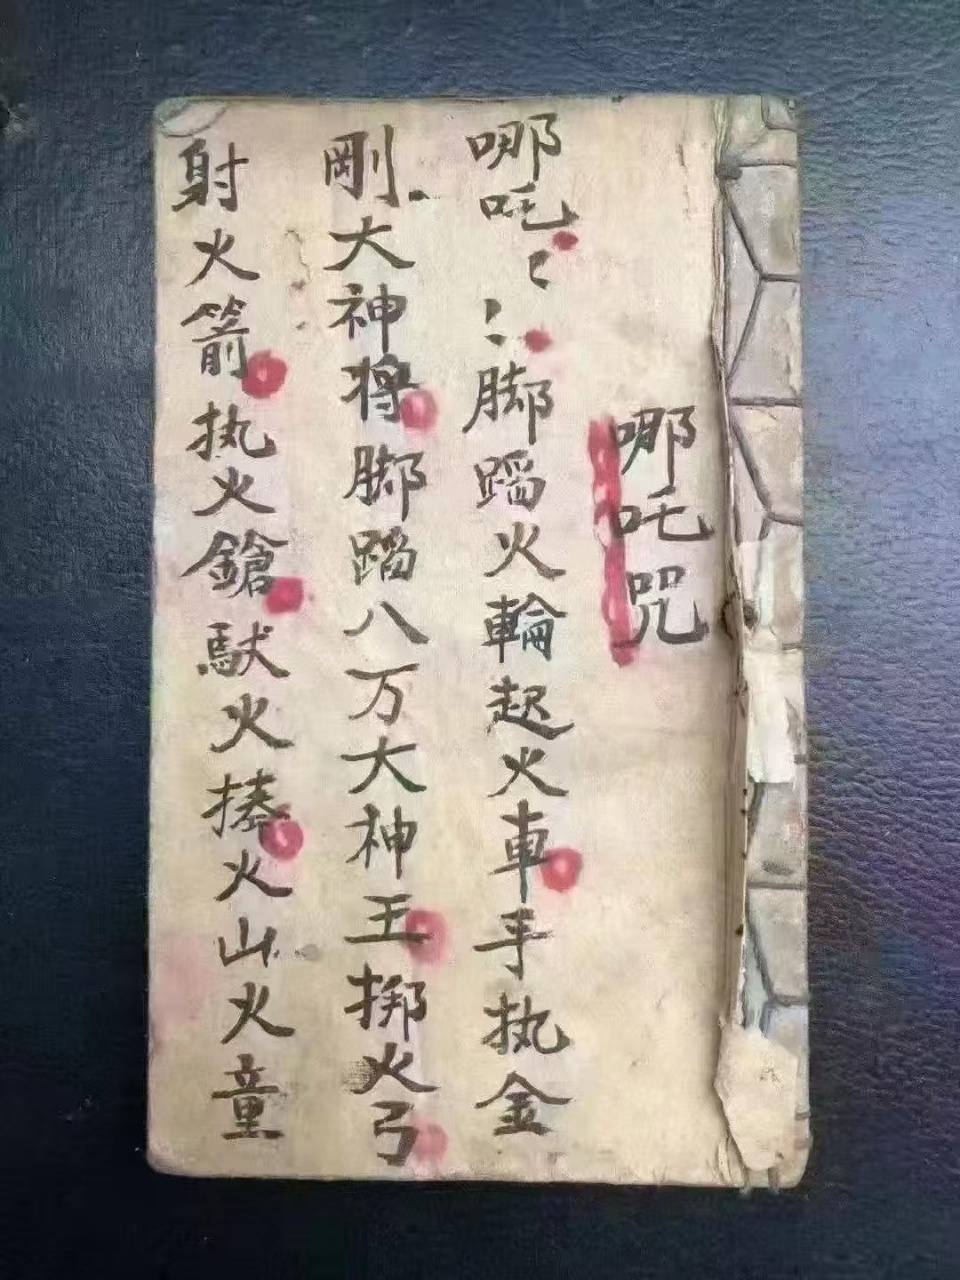 哪吒咒
哪吒〻〻脚蹈火輪起火車手执金
剛大神将脚蹈八万大神王掷火弓
射火箭执火鎗馱火捧火山火童